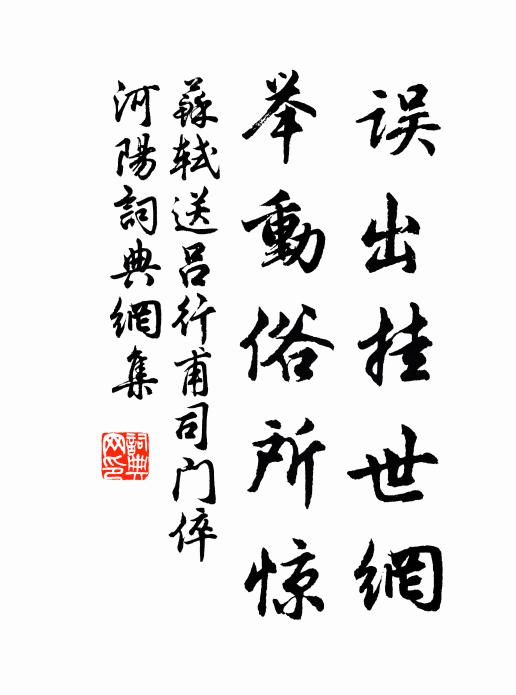 误出挂世網
举動俗所惊
蘇轼送吕行甫司门倅
河陽詞典網集
詞典网印